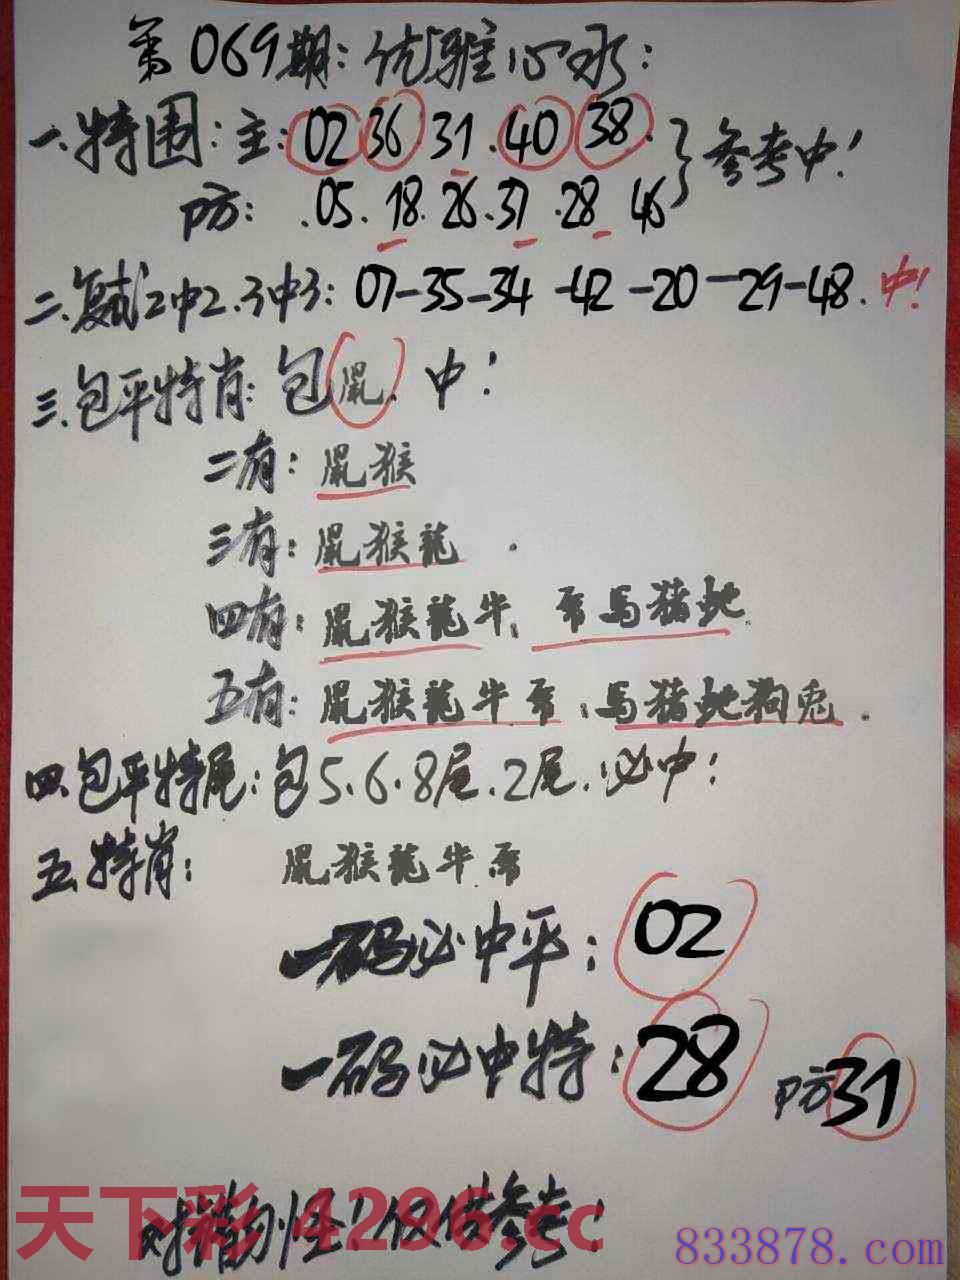 第069期:优雅心水:
一.特围:主:02 36 31.40 38.}参考中!
防:.05.18.26.37.28 46
二.复式2中2.3中3:07-35-34-42-20-29-48.中!
三.包平特肖:包鼠.中!
二有:鼠猴
三有:鼠猴龍.
四有:鼠猴龍牛.虎马猪蛇.
五有:鼠猴龍牛虎.马猪蛇狗兎.
四.包平特尾:包5.6.8尾.2尾.必中!
五.特肖:鼠猴龍牛.虎
一码必中平:02
一码必中特:28 防31
错勿怪!仅供参考!
天下彩 4296.cc
833878.com